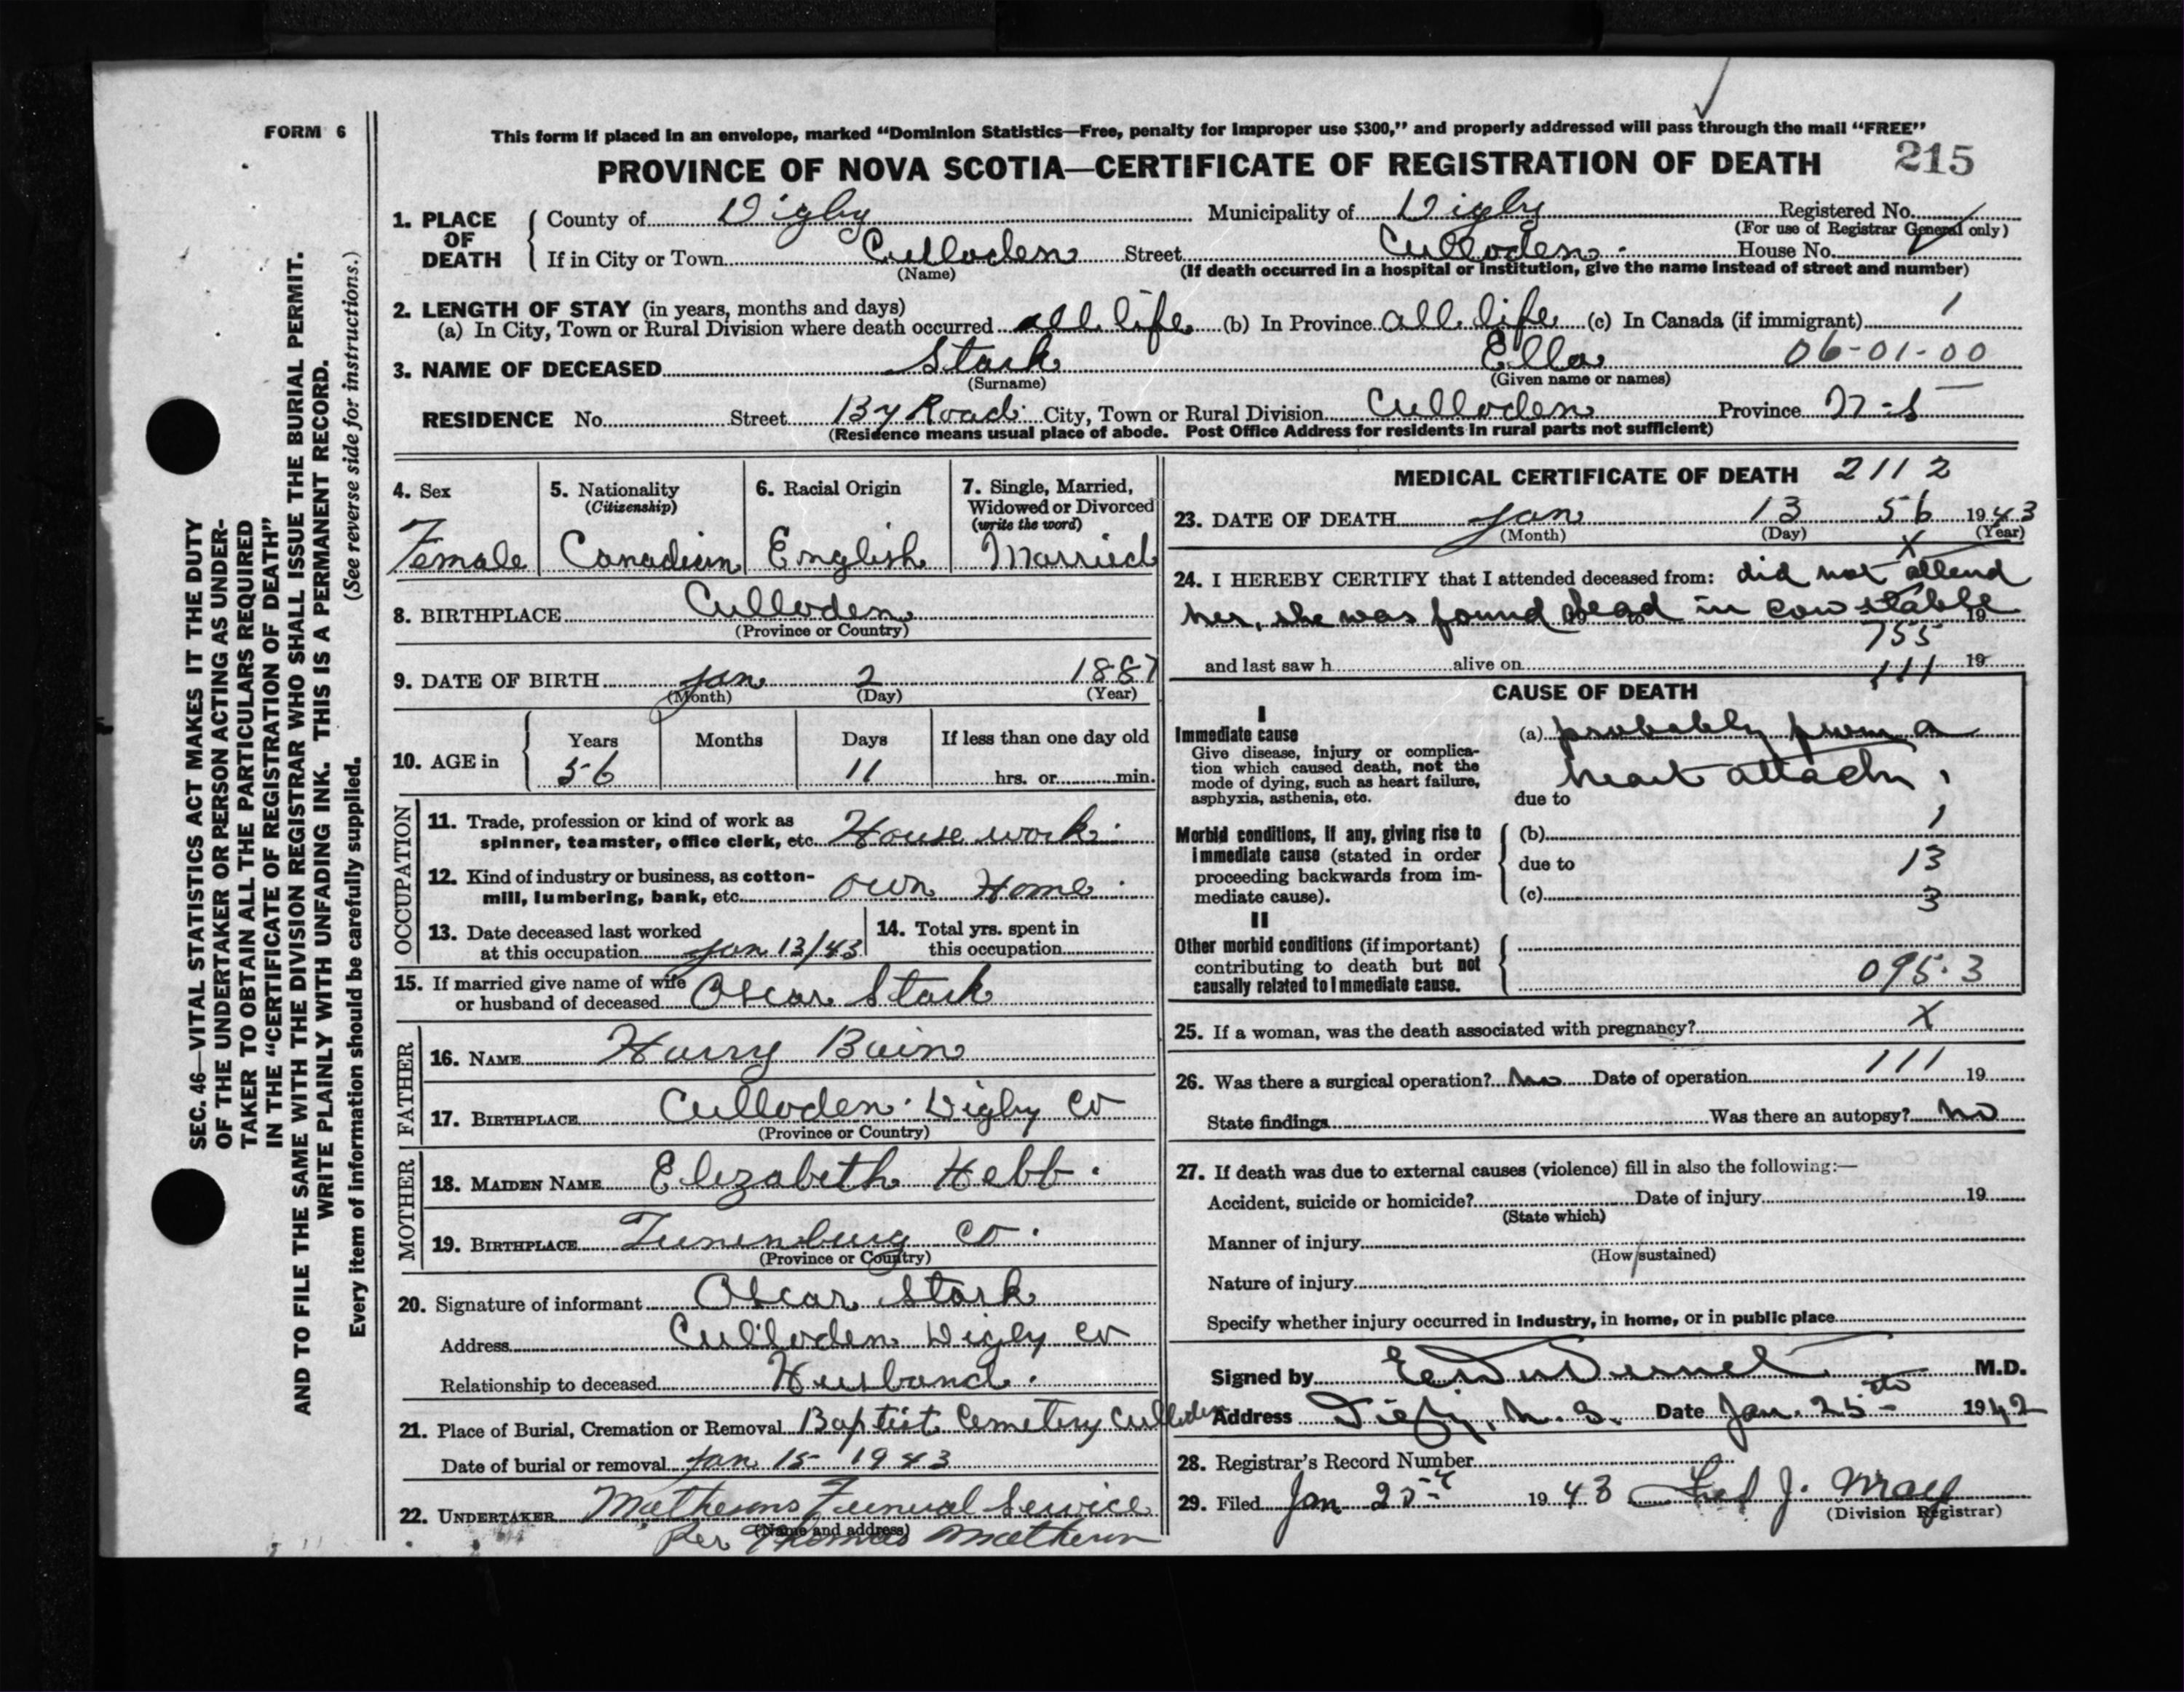 FORM 6
This form if placed in an envelope, marked “Dominion Statistics—Free, penalty for improper use $300,” and properly addressed will pass through the mail “FREE”
PROVINCE OF NOVA SCOTIA—CERTIFICATE OF REGISTRATION OF DEATH 215
1. PLACE OF DEATH
County of Digby Municipality of Digby Registered No.
(For use of Registrar General only)
If in City or Town Culloden Street Culloden House No.
(Name) (If death occurred in a hospital or institution, give the name instead of street and number)
2. LENGTH OF STAY (in years, months and days)
(a) In City, Town or Rural Division where death occurred all life (b) In Province all life (c) In Canada (if immigrant) 1
3. NAME OF DECEASED Stark Ella 06-01-00
(Surname) (Given name or names)
RESIDENCE No. Street By Road City, Town or Rural Division Culloden Province N-S
(Residence means usual place of abode. Post Office Address for residents in rural parts not sufficient)
4. Sex
Female
5. Nationality
(Citizenship)
Canadian
6. Racial Origin
English
7. Single, Married,
Widowed or Divorced
(write the word)
Married
8. BIRTHPLACE Culloden
(Province or Country)
9. DATE OF BIRTH Jan 2 1887
(Month) (Day) (Year)
10. AGE in
Years Months Days If less than one day old
56 11 hrs. or min.
OCCUPATION
11. Trade, profession or kind of work as
spinner, teamster, office clerk, etc. House work.
12. Kind of industry or business, as cotton-
mill, lumbering, bank, etc. own Home.
13. Date deceased last worked
at this occupation Jan 13/43
14. Total yrs. spent in
this occupation
15. If married give name of wife
or husband of deceased Oscar Stark
FATHER
16. NAME Harry Bain
17. BIRTHPLACE Culloden Digby Co
(Province or Country)
MOTHER
18. MAIDEN NAME Elizabeth Hebb.
19. BIRTHPLACE Lunenburg Co.
(Province or Country)
20. Signature of informant Oscar Stark
Address Culloden Digby Co
Relationship to deceased Husband.
21. Place of Burial, Cremation or Removal Baptist Cemetery Culloden
Date of burial or removal Jan 15 1943
22. UNDERTAKER Funeral Service
(Name and address)
Per Thomas
MEDICAL CERTIFICATE OF DEATH 2112
23. DATE OF DEATH Jan 13 56 1943
(Month) (Day) (Year)
X
24. I HEREBY CERTIFY that I attended deceased from: did not attend
her, she was found dead in cow stable 19
755
and last saw h alive on 19
111
CAUSE OF DEATH
I
Immediate cause
Give disease, injury or complica-
tion which caused death, not the
mode of dying, such as heart failure,
asphyxia, asthenia, etc.
(a) probably from a
heart attack.
due to
Morbid conditions, if any, giving rise to
immediate cause (stated in order
proceeding backwards from im-
mediate cause).
(b) 1
due to 13
(c) 3
II
Other morbid conditions (if important)
contributing to death but not
causally related to immediate cause.
095.3
25. If a woman, was the death associated with pregnancy? X
26. Was there a surgical operation? No Date of operation 111 19
State findings Was there an autopsy? No
27. If death was due to external causes (violence) fill in also the following:—
Accident, suicide or homicide? Date of injury 19
(State which)
Manner of injury
(How sustained)
Nature of injury
Specify whether injury occurred in industry, in home, or in public place
Signed by M.D.
Address Digby, N.S. Date Jan. 25th 1942
28. Registrar's Record Number
29. Filed Jan 1943
(Division Registrar)
SEC. 46—VITAL STATISTICS ACT MAKES IT THE DUTY
OF THE UNDERTAKER OR PERSON ACTING AS UNDER-
TAKER TO OBTAIN ALL THE PARTICULARS REQUIRED
IN THE “CERTIFICATE OF REGISTRATION OF DEATH”
AND TO FILE THE SAME WITH THE DIVISION REGISTRAR WHO SHALL ISSUE THE BURIAL PERMIT.
WRITE PLAINLY WITH UNFADING INK. THIS IS A PERMANENT RECORD.
Every item of information should be carefully supplied. (See reverse side for instructions.)